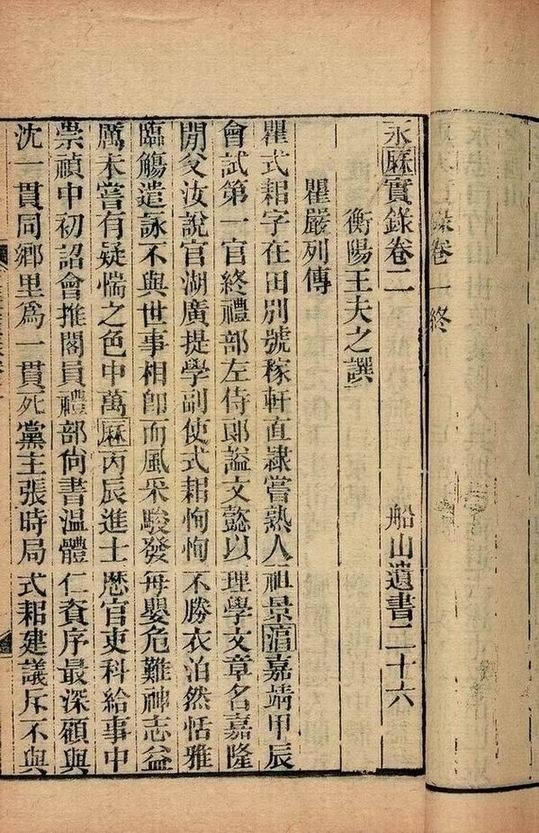 錄卷一終
永厤實錄卷二　船山遺書二十六
衡陽王夫之譔
瞿嚴列傳
瞿式耜字在田別號稼軒直隷嘗熟人祖景淳嘉靖甲辰
會試第一官終禮部左侍郞諡文懿以理學文章名嘉隆
閒父汝說官湖廣提學副使式耜恂恂不勝衣泊然恬雅
臨觴造詠不與世事相卽而風采駿發每嬰危難神志益
厲未嘗有疑惴之色中萬厤丙辰進士歷官吏科給事中
崇禎中初詔會推閣員禮部尙書溫體仁資序最深顧與
沈一貫同鄉里爲一貫死黨主張時局式耜建議斥不與